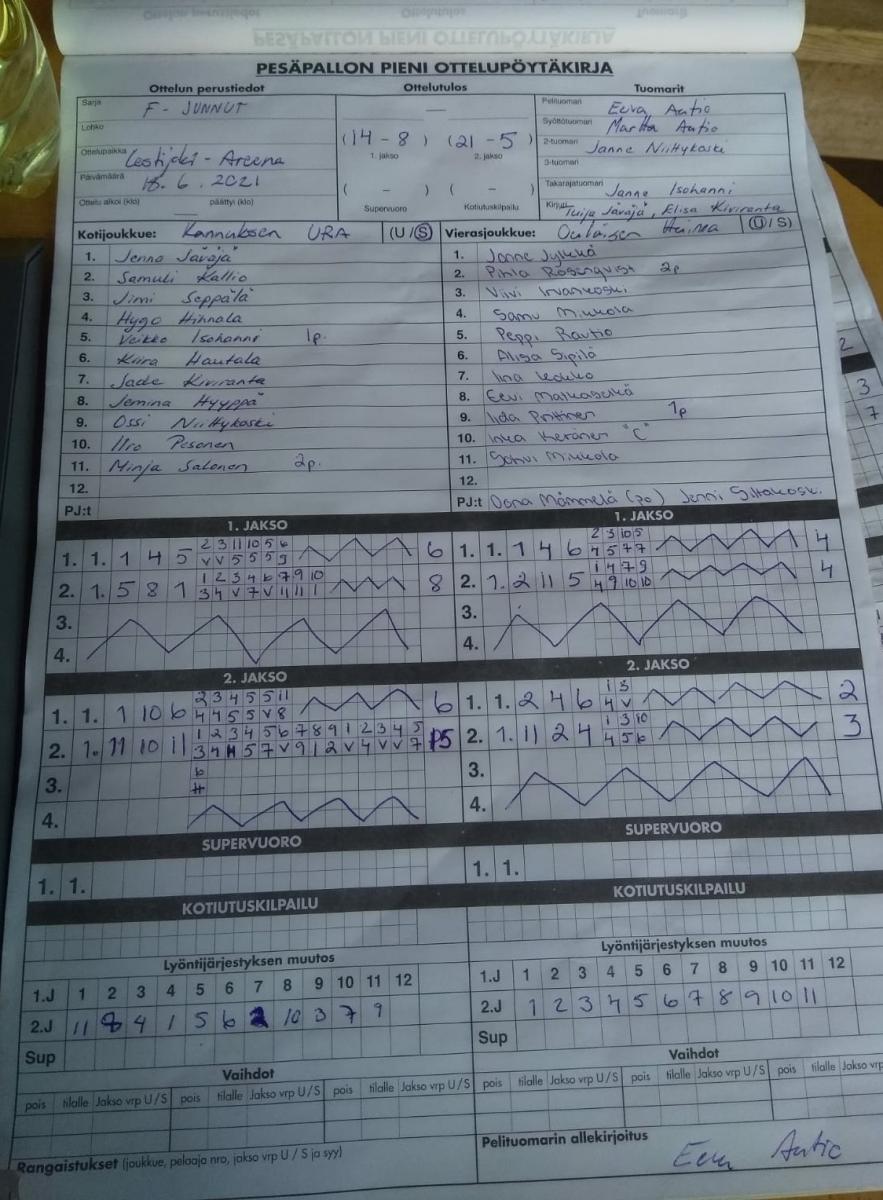 PESÄPALLON PIENI OTTELUPÖYTÄKIRJA
Ottelun perustiedot Ottelutulos Tuomarit
Sarja F - JUNNUT
Lohko
Ottelupaikka Lestijoki - Areena
Päivämäärä 6 . 2021
Ottelu alkoi (klo) päättyi (klo)
(14 - 8) (21 - 5)
1. jakso 2. jakso
( - ) ( - )
Supervuoro Kotiutuskilpailu
Pelituomari Eeva Autio
Syöttötuomari Martta Autio
2-tuomari Janne Niittykoski
3-tuomari
Takarajatuomari Janne Isohanni
Kirjuri Tuija Jäväjä, Elisa Kiviranta
Kotijoukkue: Kannuksen URA (U / S)
1. Jenna Jäväjä
2. Samuli Kallio
3. Jimi Seppälä
4. Hugo Hihnala
5. Veikko Isohanni 1p.
6. Kiira Hautala
7. Jade Kiviranta
8. Jemina Hyyppä
9. Ossi Niittykoski
10. Iiro Pesonen
11. Minja Salonen 2p.
12.
PJ:t
Vierasjoukkue: Oulaisten Huima (U / S)
1. Janne Jylkkä
2. Pihla Rosenqvist 2p
3. Viivi
4. Samu Mikkola
5. Peppi Rautio
6. Alisa Sipilä
7. Iina
8. Eevi Matkaselkä
9. Iida 1p
10. Inka Keränen "C"
11. Mikkola
12.
PJ:t Oona Mämmelä (po) Jenni
1. JAKSO 1. JAKSO
2 3 11 10 5 6
1. 1. 1 4 5 V V 5 5 5 9 6
1 2 3 4 6 7 9 10
2. 1. 5 8 1 3 4 V 7 V 11 11 1 8
3.
4.
2 3 10 5
1. 1. 1 4 6 4 5 7 7 4
1 4 7 9
2. 1. 2 11 5 4 9 10 10 4
3.
4.
2. JAKSO 2. JAKSO
2 3 4 5 5 11
1. 1. 1 10 6 4 4 5 5 V 8 6
1 2 3 4 5 6 7 8 9 1 2 3 4 5
2. 1. 11 10 11 3 4 5 7 V 9 1 2 V 4 V V 7 15
3. 6
4.
1 3
1. 1. 2 4 6 4 V 2
1 3 10
2. 1. 11 2 4 4 5 6 3
3.
4.
SUPERVUORO SUPERVUORO
1. 1. 1. 1.
KOTIUTUSKILPAILU KOTIUTUSKILPAILU
Lyöntijärjestyksen muutos
1.J 1 2 3 4 5 6 7 8 9 10 11 12
2.J 11 8 4 1 5 6 2 10 3 7 9
Sup
Lyöntijärjestyksen muutos
1.J 1 2 3 4 5 6 7 8 9 10 11 12
2.J 1 2 3 4 5 6 7 8 9 10 11
Sup
Vaihdot Vaihdot
pois tilalle Jakso vrp U / S pois tilalle Jakso vrp U / S pois tilalle Jakso vrp U / S
pois tilalle Jakso vrp U / S pois tilalle Jakso vrp U / S pois tilalle Jakso vrp
Rangaistukset (joukkue, pelaaja nro, jakso vrp U / S ja syy)
Pelituomarin allekirjoitus
Eeva Autio